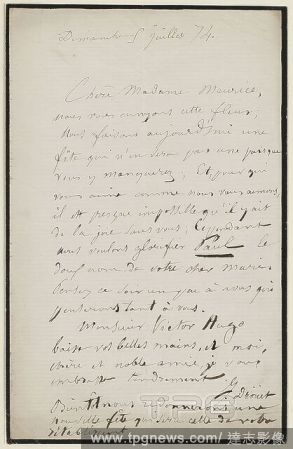 Dimanche 5 juillet 74.
Chère Madame Meurice,
nous vous envoyons cette fleur;
Nous faisons aujourd'hui une
fête qui n'en sera pas une parceque
vous y manquerez. Et, pour qui
vous aime comme nous vous aimons,
il est presque impossible qu'il y ait
de la joie sans vous; Cependant
nous voulons glorifier Paul le
doux nom de votre cher mari.
Pensez ce soir un peu à nous qui
penserons tant à vous.
Monsieur Victor Hugo
baise vos belles mains, et moi,
chère et noble amie, je vous
embrasse tendrement
J. Drouet
Bientôt nous donnerons une
nouvelle fête qui sera celle de votre
rétablissement
TPG
www.tpgnews.com 達志影像